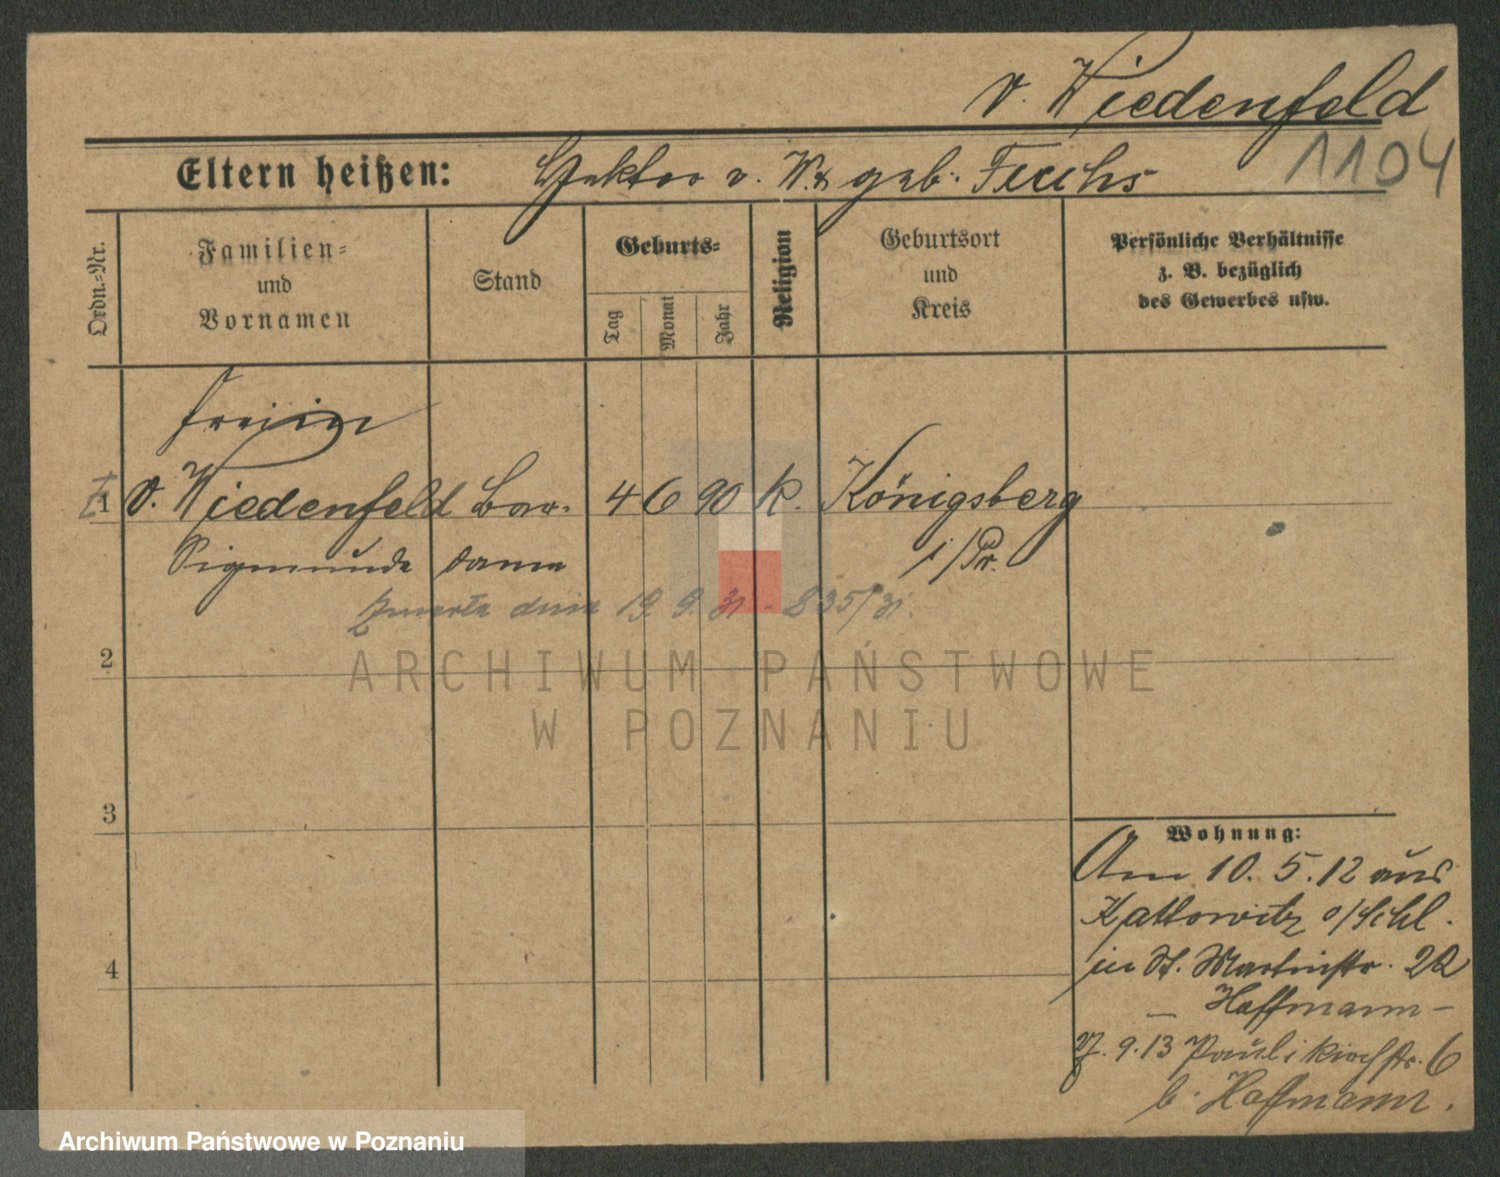 v. Wiedenfeld
1104
Eltern heißen: Hektor v. W. & geb. Fuchs
Ordn.-Nr.
Familien-
und
Vornamen
Stand
Geburts-
Tag
Monat
Jahr
Religion
Geburtsort
und
Kreis
Persönliche Verhältnisse
z. B. bezüglich
des Gewerbes usw.
Freiin
1 v. Wiedenfeld Bar- 4 6 90 k. Königsberg
Sigmunde dame i/Pr.
zmarła dnia 19. 9. 31 - 835/31.
2
ARCHIWUM PAŃSTWOWE
W POZNANIU
3
4
Wohnung:
Am 10. 5. 12 aus
Kattowitz o/Schl.
in St. Martinstr. 22
– Hoffmann –
9. 13 Paulikirchstr. 6
b. Hoffmann.
Archiwum Państwowe w Poznaniu